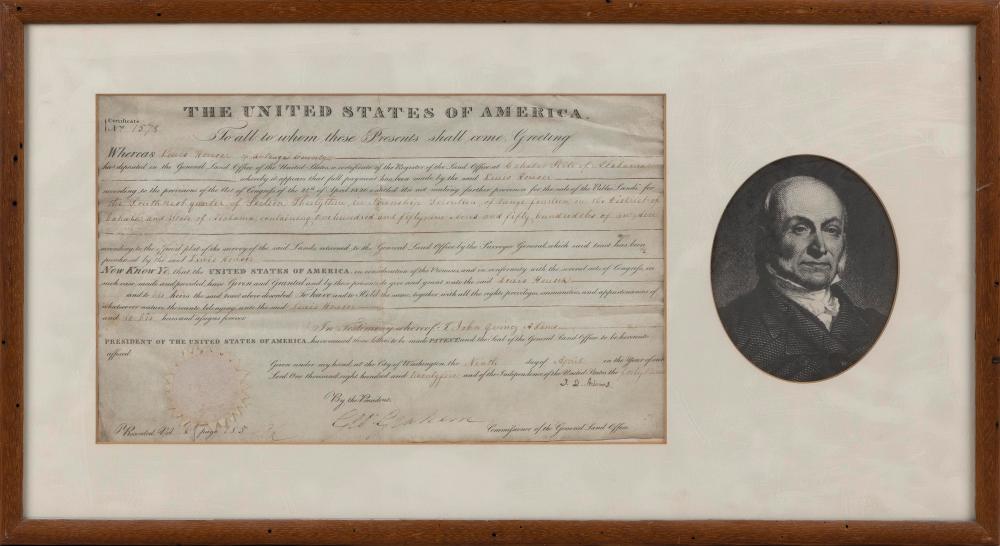 THE UNITED STATES OF AMERICA.
Certificate
No. 1578
To all to whom these Presents shall come, Greeting
Whereas Lewis Houser of Autauga County
has deposited in the General Land Office of the United States, a certificate of the Register of the Land Office at Cahaba State of Alabama
whereby it appears that full payment has been made by the said Lewis Houser
according to the provisions of the Act of Congress of the 24th of April 1820 entitled An act making further provision for the sale of the Public Lands for
the South West quarter of Section Thirty three, in Township Seventeen, of Range fourteen in the District of
Cahaba and State of Alabama, containing One hundred and fifty nine Acres and fifty hundredths of an Acre
according to the official plat of the survey of the said Lands, returned to the General Land Office by the Surveyor General, which said tract has been
purchased by the said Lewis Houser
Now Know Ye, that the UNITED STATES OF AMERICA, in consideration of the Premises, and in conformity with the several acts of Congress, in
such case made and provided, have Given and Granted and by these presents do give and grant unto the said Lewis Houser
and to his heirs the said tract above described To have and to Hold the same, together with all the rights, privileges, immunities, and appurtenances of
whatsoever nature thereunto belonging, unto the said Lewis Houser
and to his heirs and assigns forever.
In Testimony whereof I John Quincy Adams
PRESIDENT OF THE UNITED STATES OF AMERICA, have caused these letters to be made PATENT, and the Seal of the General Land Office to be hereunto
affixed
Given under my hand, at the City of Washington, the Ninth day of April in the Year of our
Lord One thousand, eight hundred and twenty five and of the Independence of the United States the forty ninth
J. Q. Adams
By the President.
Geo. Graham
Commissioner of the General Land Office
Recorded, Vol page 185